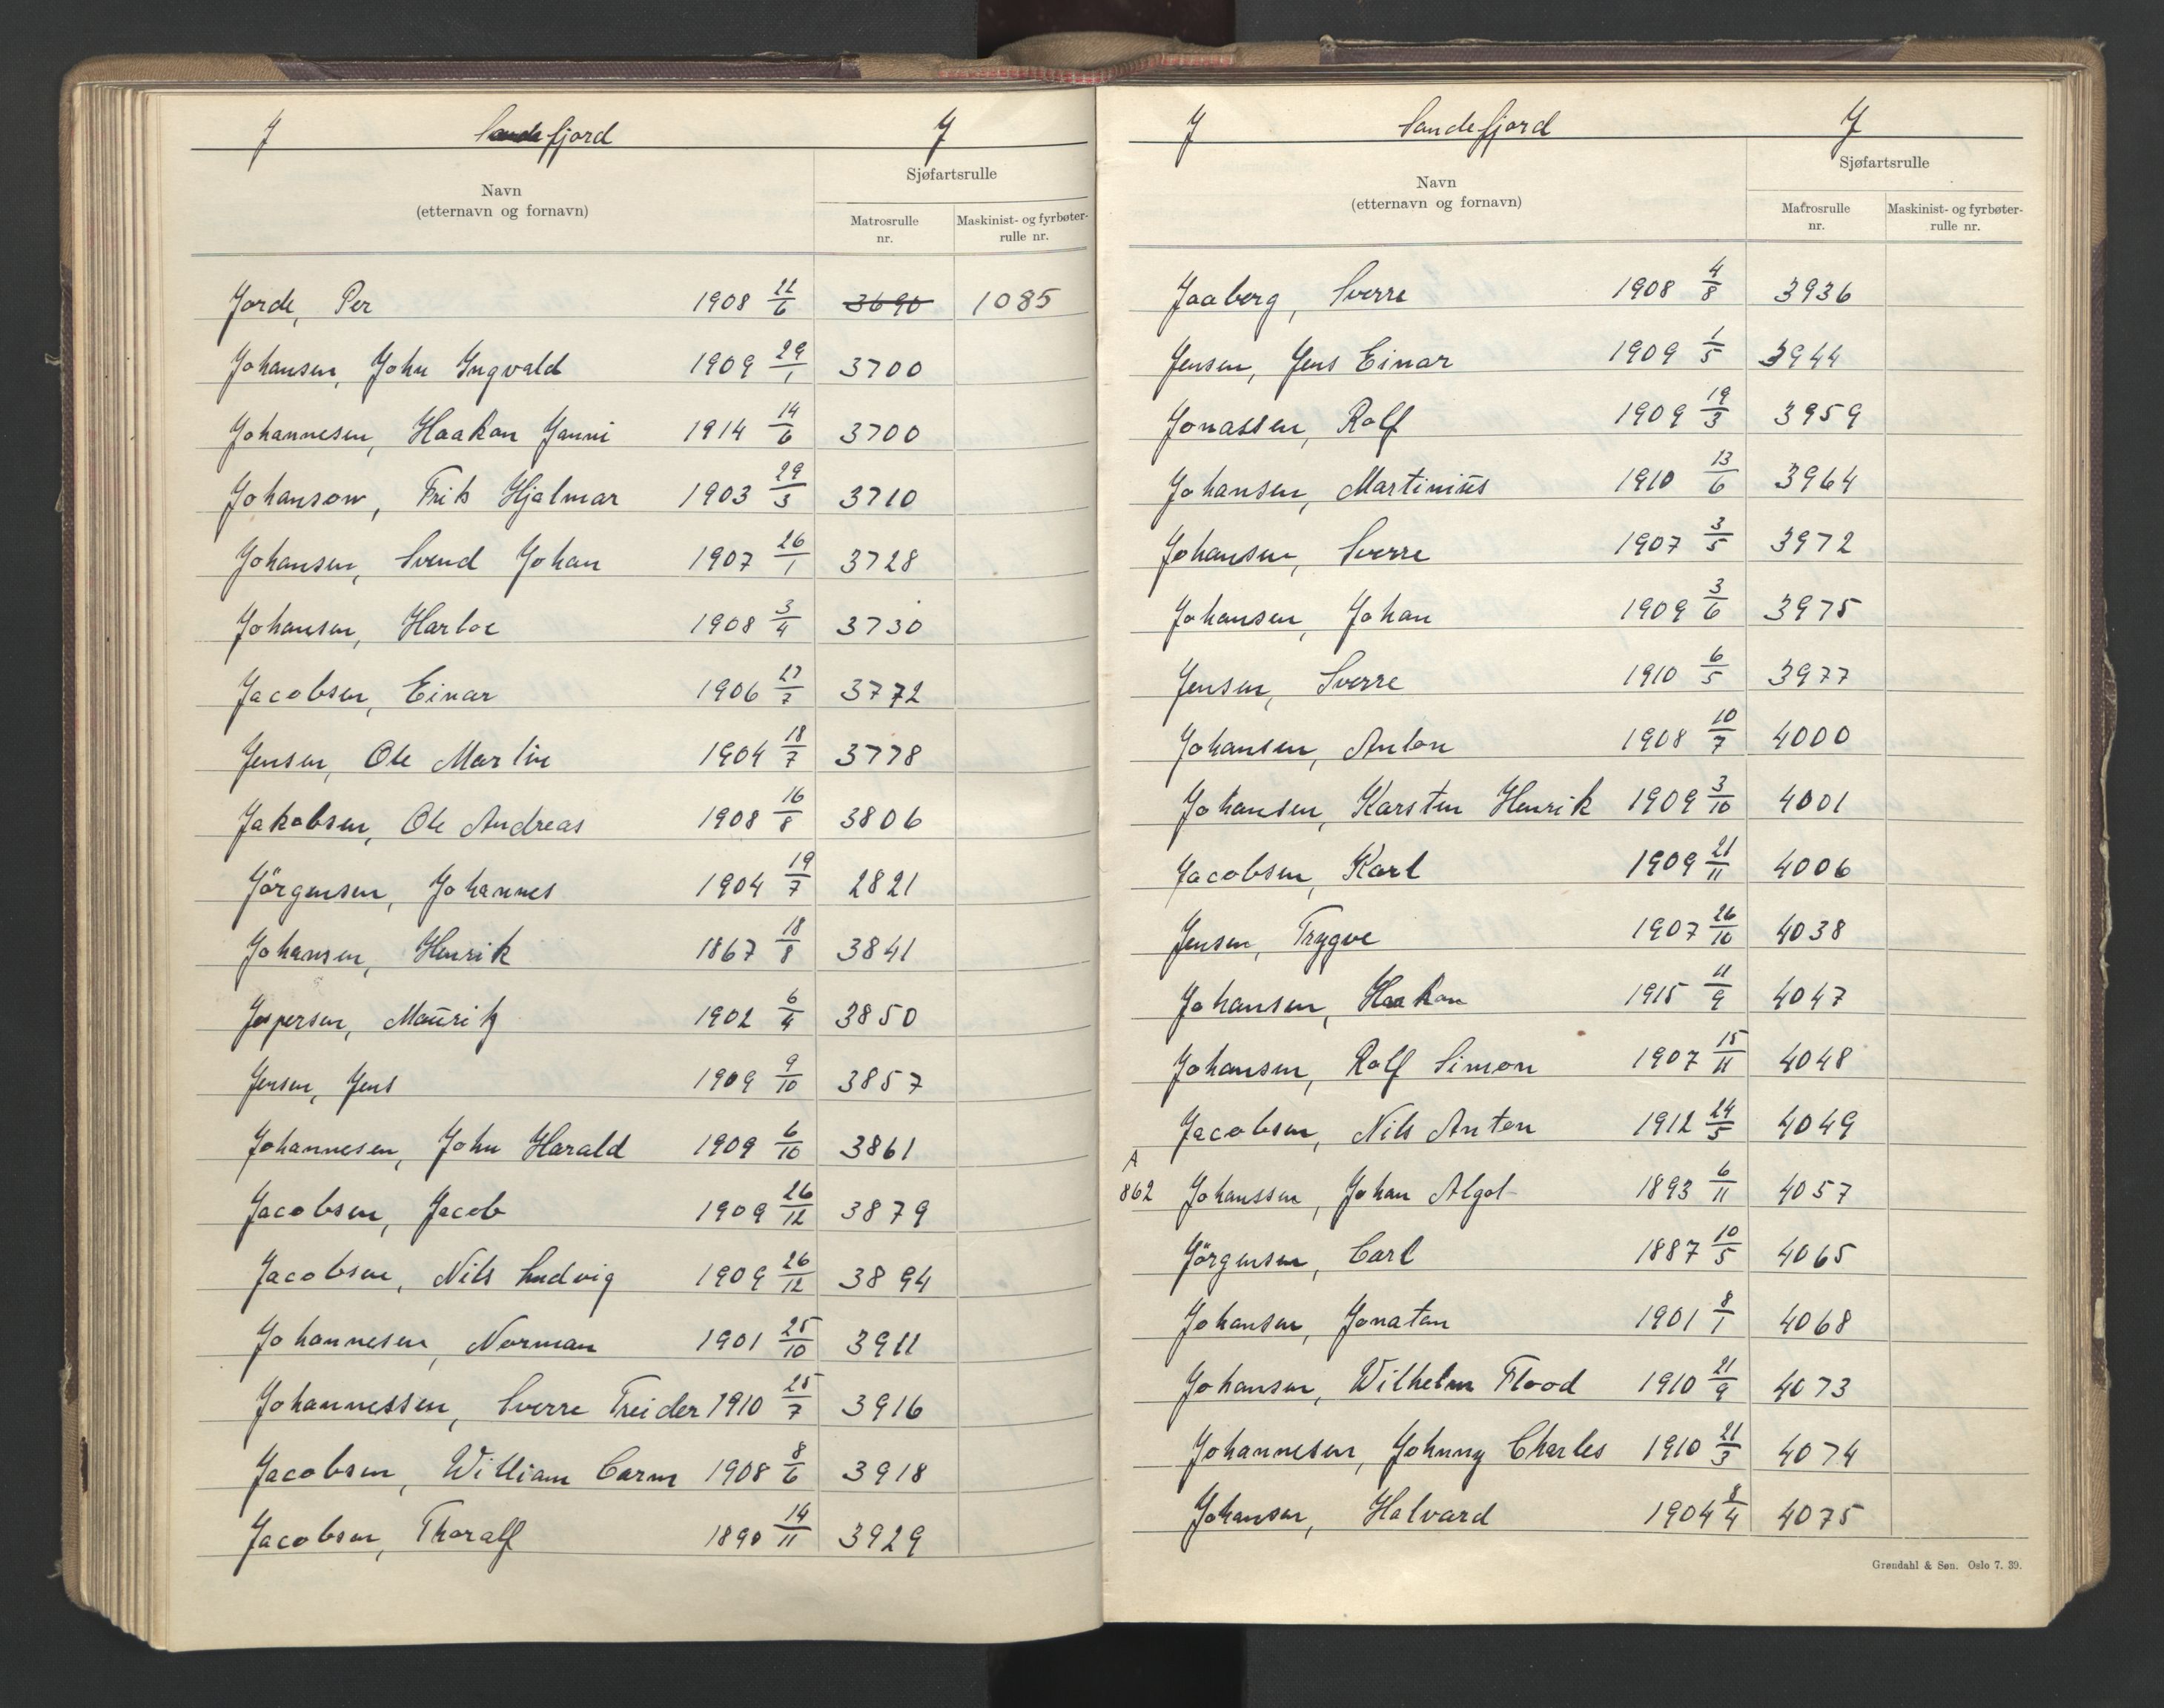 J Sandefjord J
Sjøfartsrulle
Navn
(etternavn og fornavn)
Matrosrulle nr.
Maskinist- og fyrbøter-rulle nr.
Jorde, Per 1908 22/6 3690 1085
Johansen, John Ingvald 1909 29/1 3700
Johannesen, Haakon Janni 1914 14/6 3700
Johanson, Frits Hjalmar 1903 29/3 3710
Johansen, Svend Johan 1907 26/1 3728
Johansen, Harloe 1908 3/4 3730
Jacobsen, Einar 1906 27/7 3772
Jensen, Ole Martin 1904 18/7 3778
Jakobsen, Ole Andreas 1908 16/8 3806
Jörgensen, Johannes 1904 19/7 2821
Johansen, Henrik 1867 18/8 3841
Jespersen, Mauritz 1902 6/4 3850
Jensen, Jens 1909 9/10 3857
Johannesen, John Harald 1909 6/10 3861
Jacobsen, Jacob 1909 26/12 3879
Jacobsen, Nils Ludvig 1909 26/12 3894
Johannesen, Norman 1901 25/10 3911
Johannessen, Sverre Treider 1910 25/7 3916
Jacobsen, William Carm 1908 8/6 3918
Jacobsen, Thoralf 1890 14/11 3929
J Sandefjord J
Sjøfartsrulle
Navn
(etternavn og fornavn)
Matrosrulle nr.
Maskinist- og fyrbøter-rulle nr.
Jaaberg, Sverre 1908 4/8 3936
Jensen, Jens Einar 1909 1/5 3944
Jonassen, Rolf 1909 19/3 3959
Johansen, Martinius 1910 13/6 3964
Johansen, Sverre 1907 3/5 3972
Johansen, Johan 1909 3/6 3975
Jensen, Sverre 1910 6/5 3977
Johansen, Anton 1908 10/7 4000
Johansen, Karsten Henrik 1909 3/10 4001
Jacobsen, Karl 1909 21/11 4006
Jensen, Trygve 1907 26/10 4038
Johansen, Haakon 1915 11/9 4047
Johansen, Rolf Simon 1907 15/11 4048
Jacobsen, Nils Anton 1912 24/5 4049
A
862 Johanssen, Johan Algot 1893 6/11 4057
Jörgensen, Carl 1887 10/5 4065
Johansen, Jonatan 1901 8/1 4068
Johansen, Wilhelm Flood 1910 21/9 4073
Johannesen, Johnny Charles 1910 21/3 4074
Johansen, Halvard 1904 8/4 4075
Grøndahl & Søn. Oslo 7. 39.